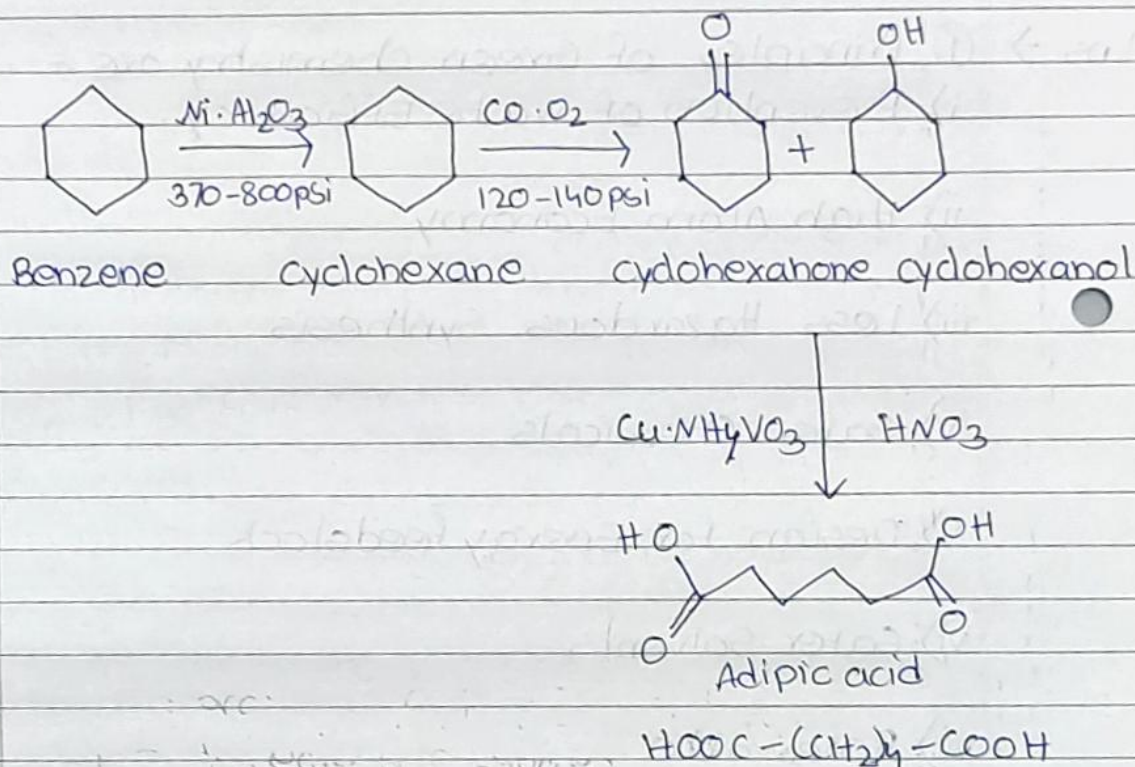 O OH
Ni·Al2O3 CO·O2
+
370-800psi 120-140psi
Benzene cyclohexane cyclohexanone cyclohexanol
Cu·NH4VO3 HNO3
HO OH
O O
Adipic acid
HOOC-(CH2)4-COOH